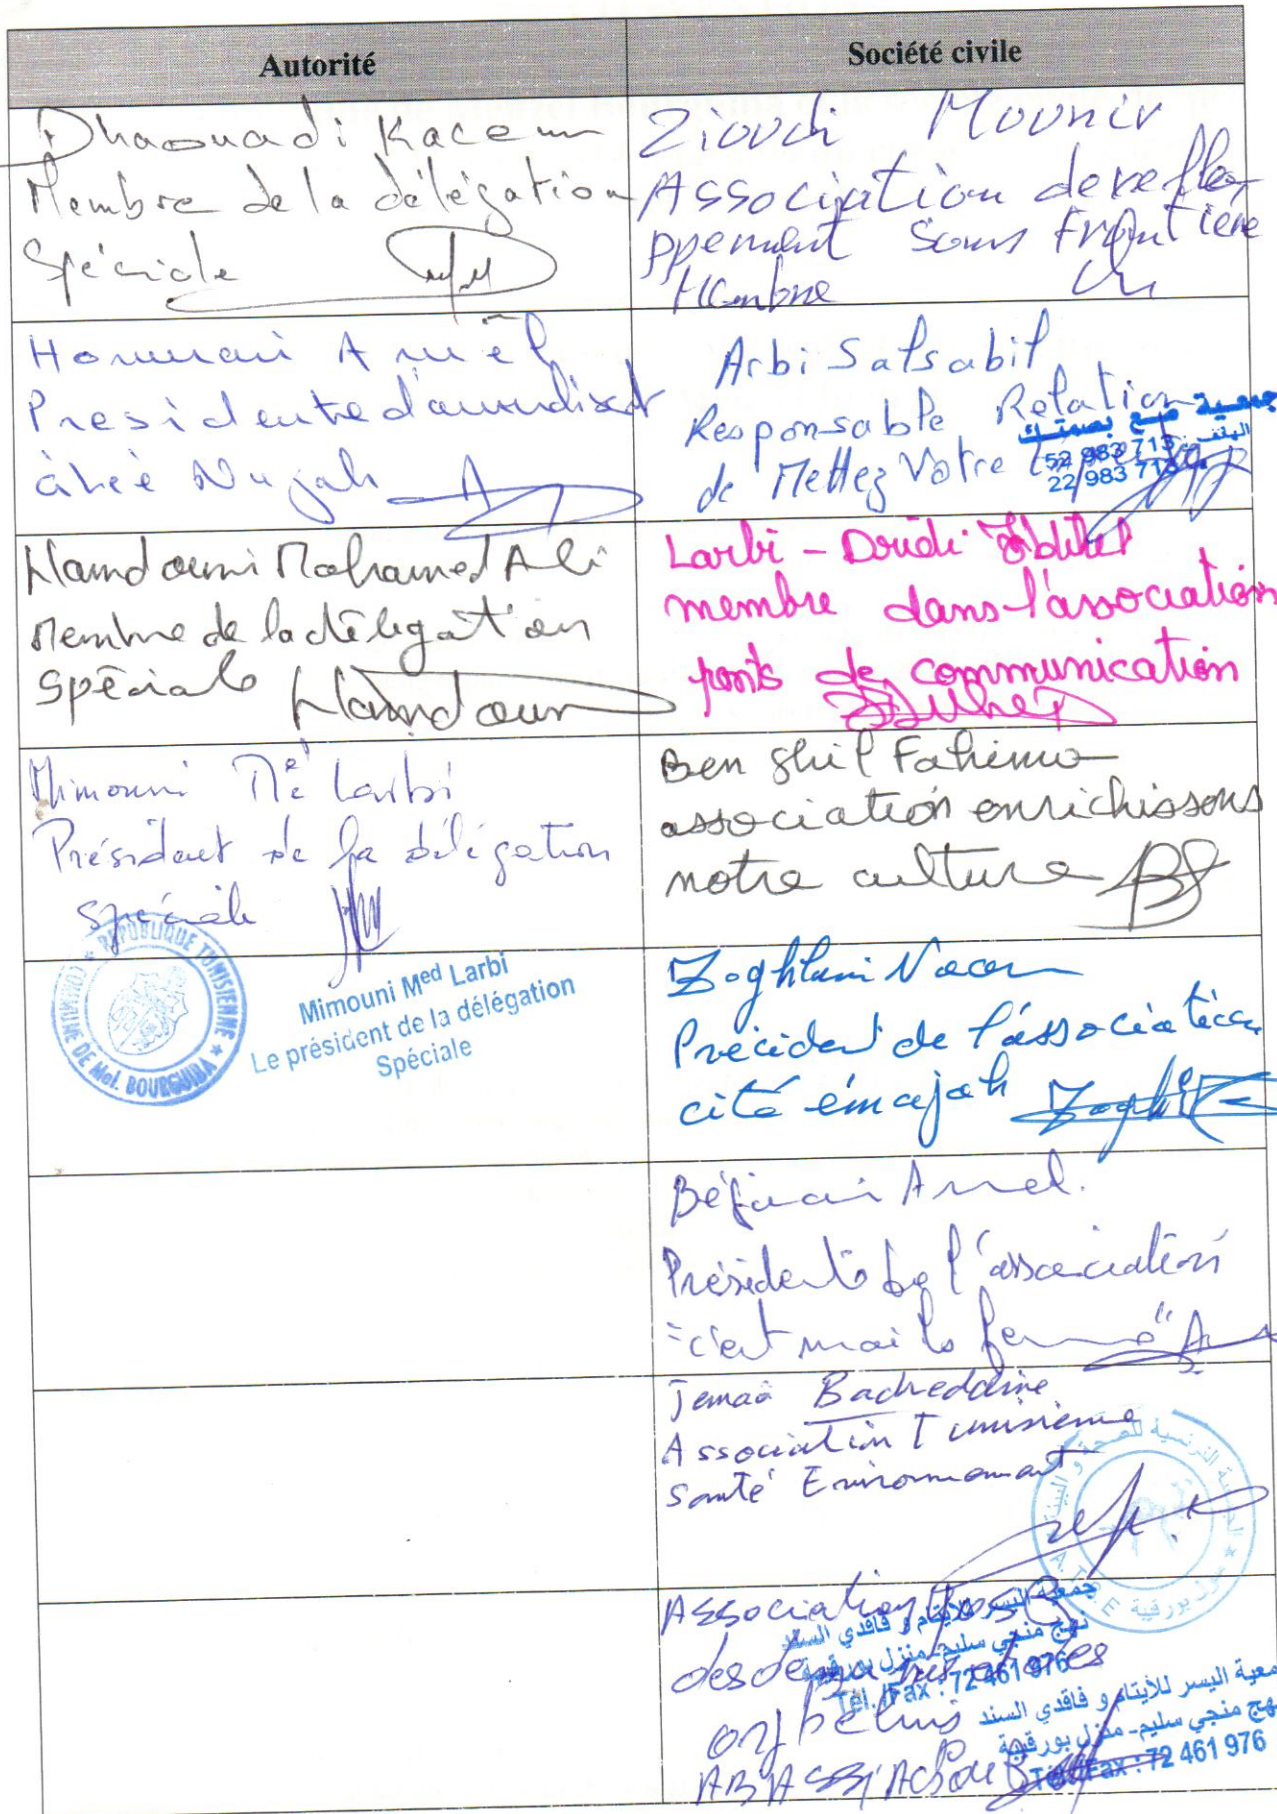 Autorité
Société civile
Dhaouadi Kacem
Membre de la délégation
Spéciale
Zioudi Mounir
Association developpement
ppement Sans Frontière
Membre
Amel
Presidente d'arrondisst
Najah
Arbi Salsabil
Responsable Relation
de Mettez Votre
جمعية ضع بصمتك
الهاتف : 52 983 713
22 983 713
Hamdouni Mohamed Ali
Membre de la délégation
spéciale Hamdouni
Larbi - Dridi
membre dans l'association
ponts de communication
Mimouni Med Larbi
Président de la délégation
spéciale
Ben Fahima
association enrichissons
notre culture
REPUBLIQUE TUNISIENNE
COMMUNE DE Mel. BOURGUIBA
Mimouni Med Larbi
Le président de la délégation
Spéciale
Zoghlami Nacer
Précident de l'association
cité énajah
Amel.
Présidente de l'association
"c'est moi la femme"
Jemaà Badreddine
Association Tunisienne
Santé Environnement
الجمعية التونسية للصحة و البيئة
منزل بورقيبة
A.T.S.E
Association
des
orphelins
جمعية اليسر للأيتام و فاقدي السند
نهج منجي سليم - منزل بورقيبة
Tél./Fax : 72 461 976
جمعية اليسر للأيتام و فاقدي السند
نهج منجي سليم - منزل بورقيبة
Tél./Fax : 72 461 976